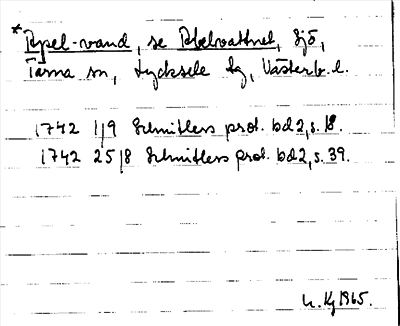 *Apel-vand, se Abelvattnet, sjö,
Tärna sn, Lycksele lg, Västerb. l.
1742 1/9 Schnitlers prot. bd 2, s. 18.
1742 25/8 Schnitlers prot. bd 2, s. 39.
1965.